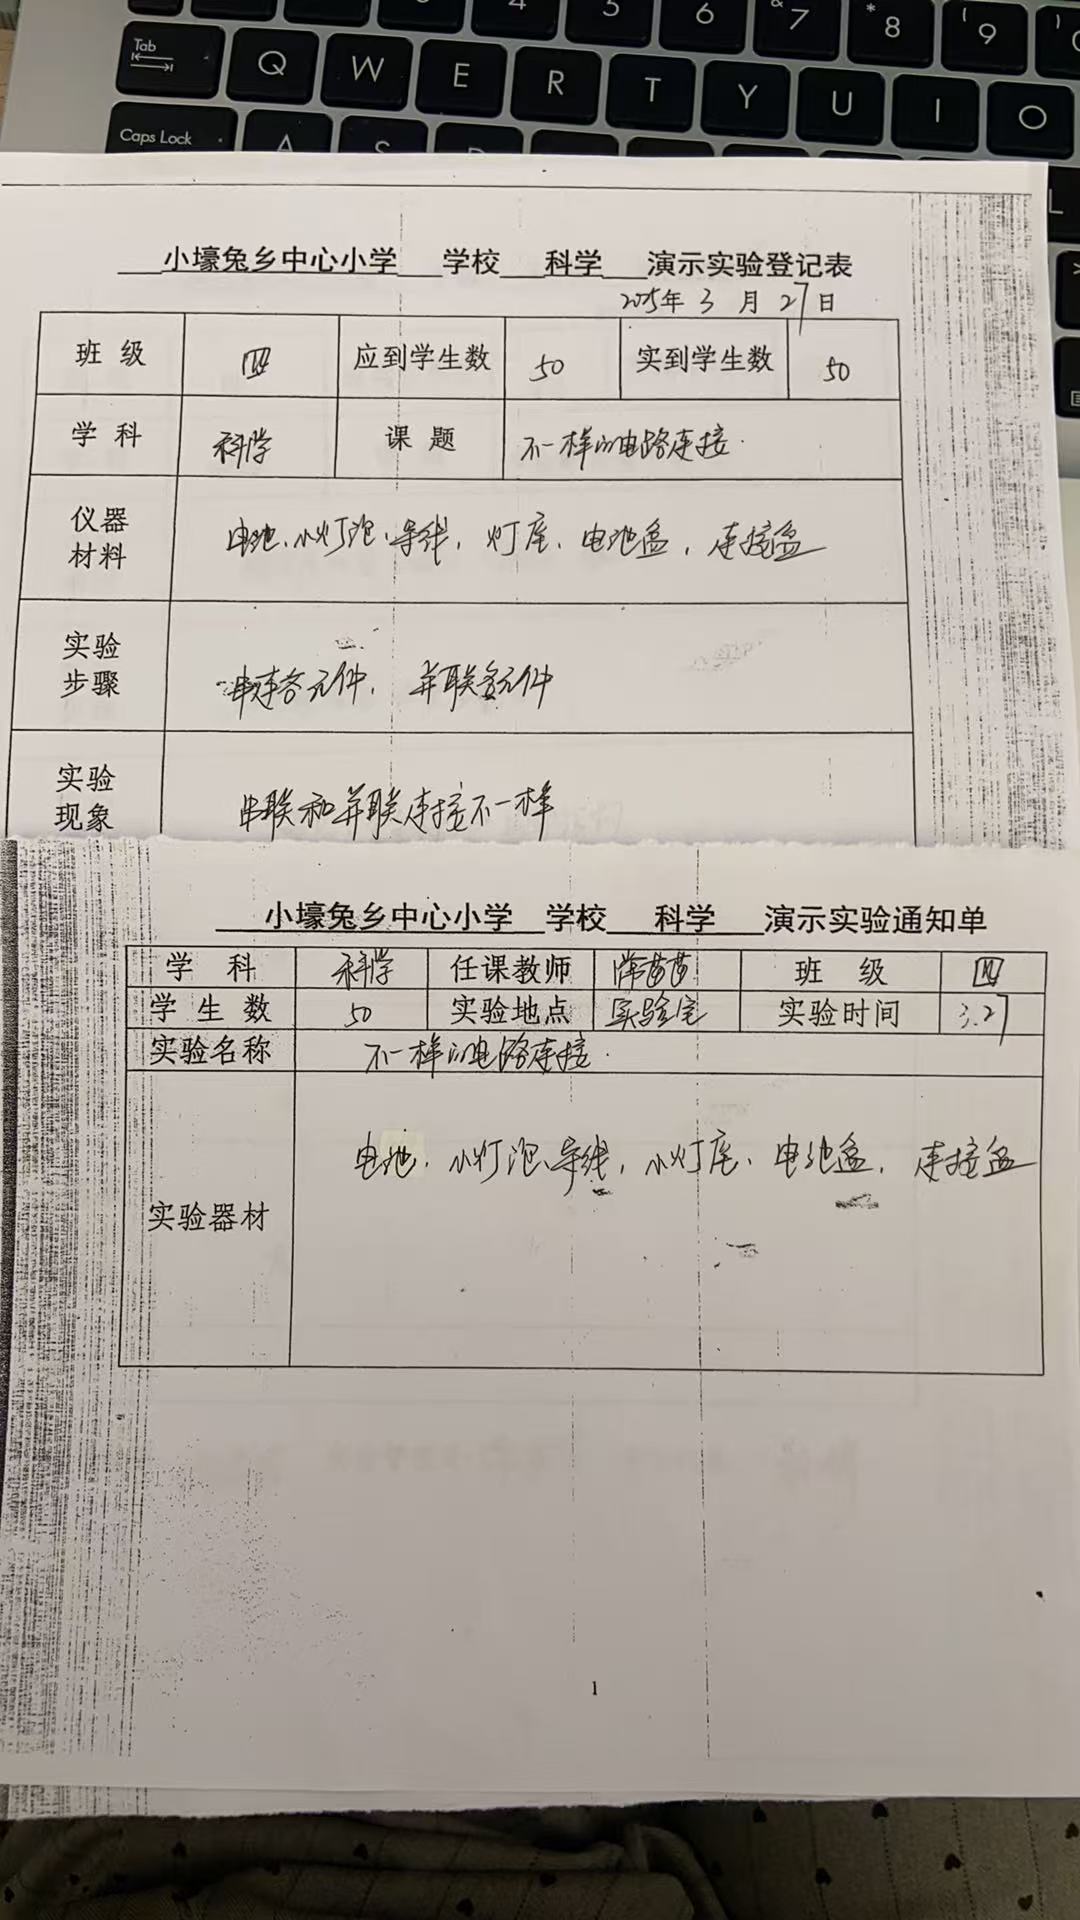 Tab
Q W E R T Y U I O
Caps Lock
小壕兔乡中心小学 学校 科学 演示实验登记表
2025年 3 月 27 日
班 级 四 应到学生数 50 实到学生数 50
学 科 科学 课 题 不一样的电路连接.
仪器材料 电池、小灯泡、导线, 灯座、电池盒, 连接盒
实验步骤 串连各元件, 并联各元件
实验现象 串联和并联连接不一样
小壕兔乡中心小学 学校 科学 演示实验通知单
学 科 科学 任课教师 苗苗 班 级 四
学 生 数 50 实验地点 实验室 实验时间 3.27
实验名称 不一样的电路连接.
实验器材 电池、小灯泡、导线, 小灯座、电池盒, 连接盒
1